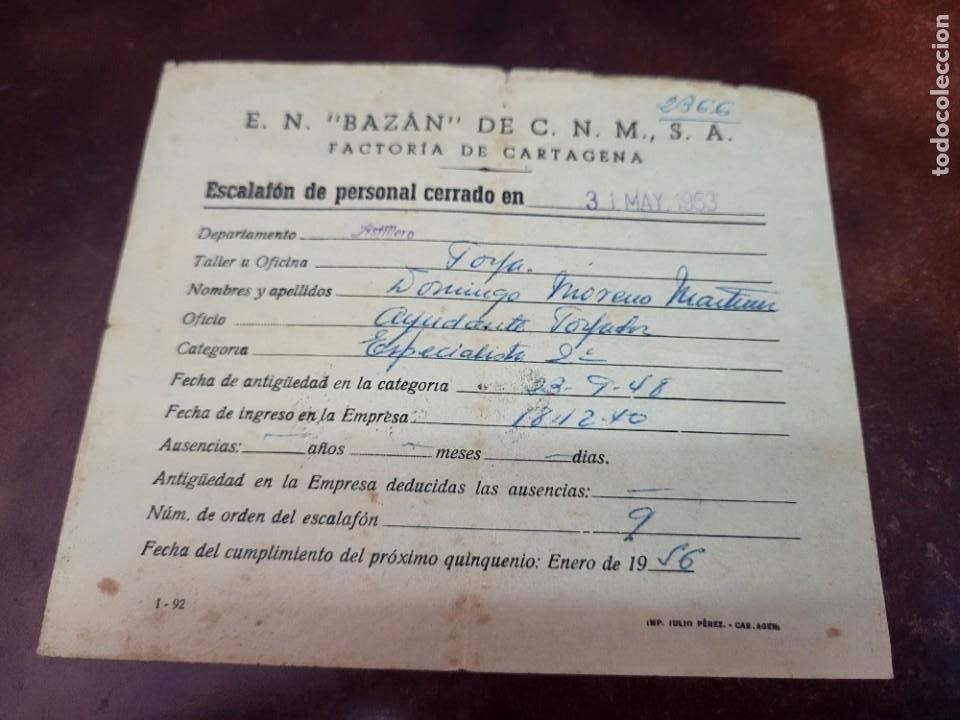 2366
E. N. "BAZÁN" DE C. N. M., S. A.
FACTORÍA DE CARTAGENA
Escalafón de personal cerrado en 31 MAY. 1953
Departamento Astillero
Taller u Oficina Forja.
Nombres y apellidos Domingo Moreno Martinez
Oficio Ayudante Forjador
Categoría Especialista 2ª
Fecha de antigüedad en la categoría 23-9-48
Fecha de ingreso en la Empresa: 18-12-40
Ausencias: — años — meses — días.
Antigüedad en la Empresa deducidas las ausencias: —
Núm. de orden del escalafón 9
Fecha del cumplimiento del próximo quinquenio: Enero de 1956
I - 92
IMP. JULIO PÉREZ. - CARTAGENA
todocoleccion